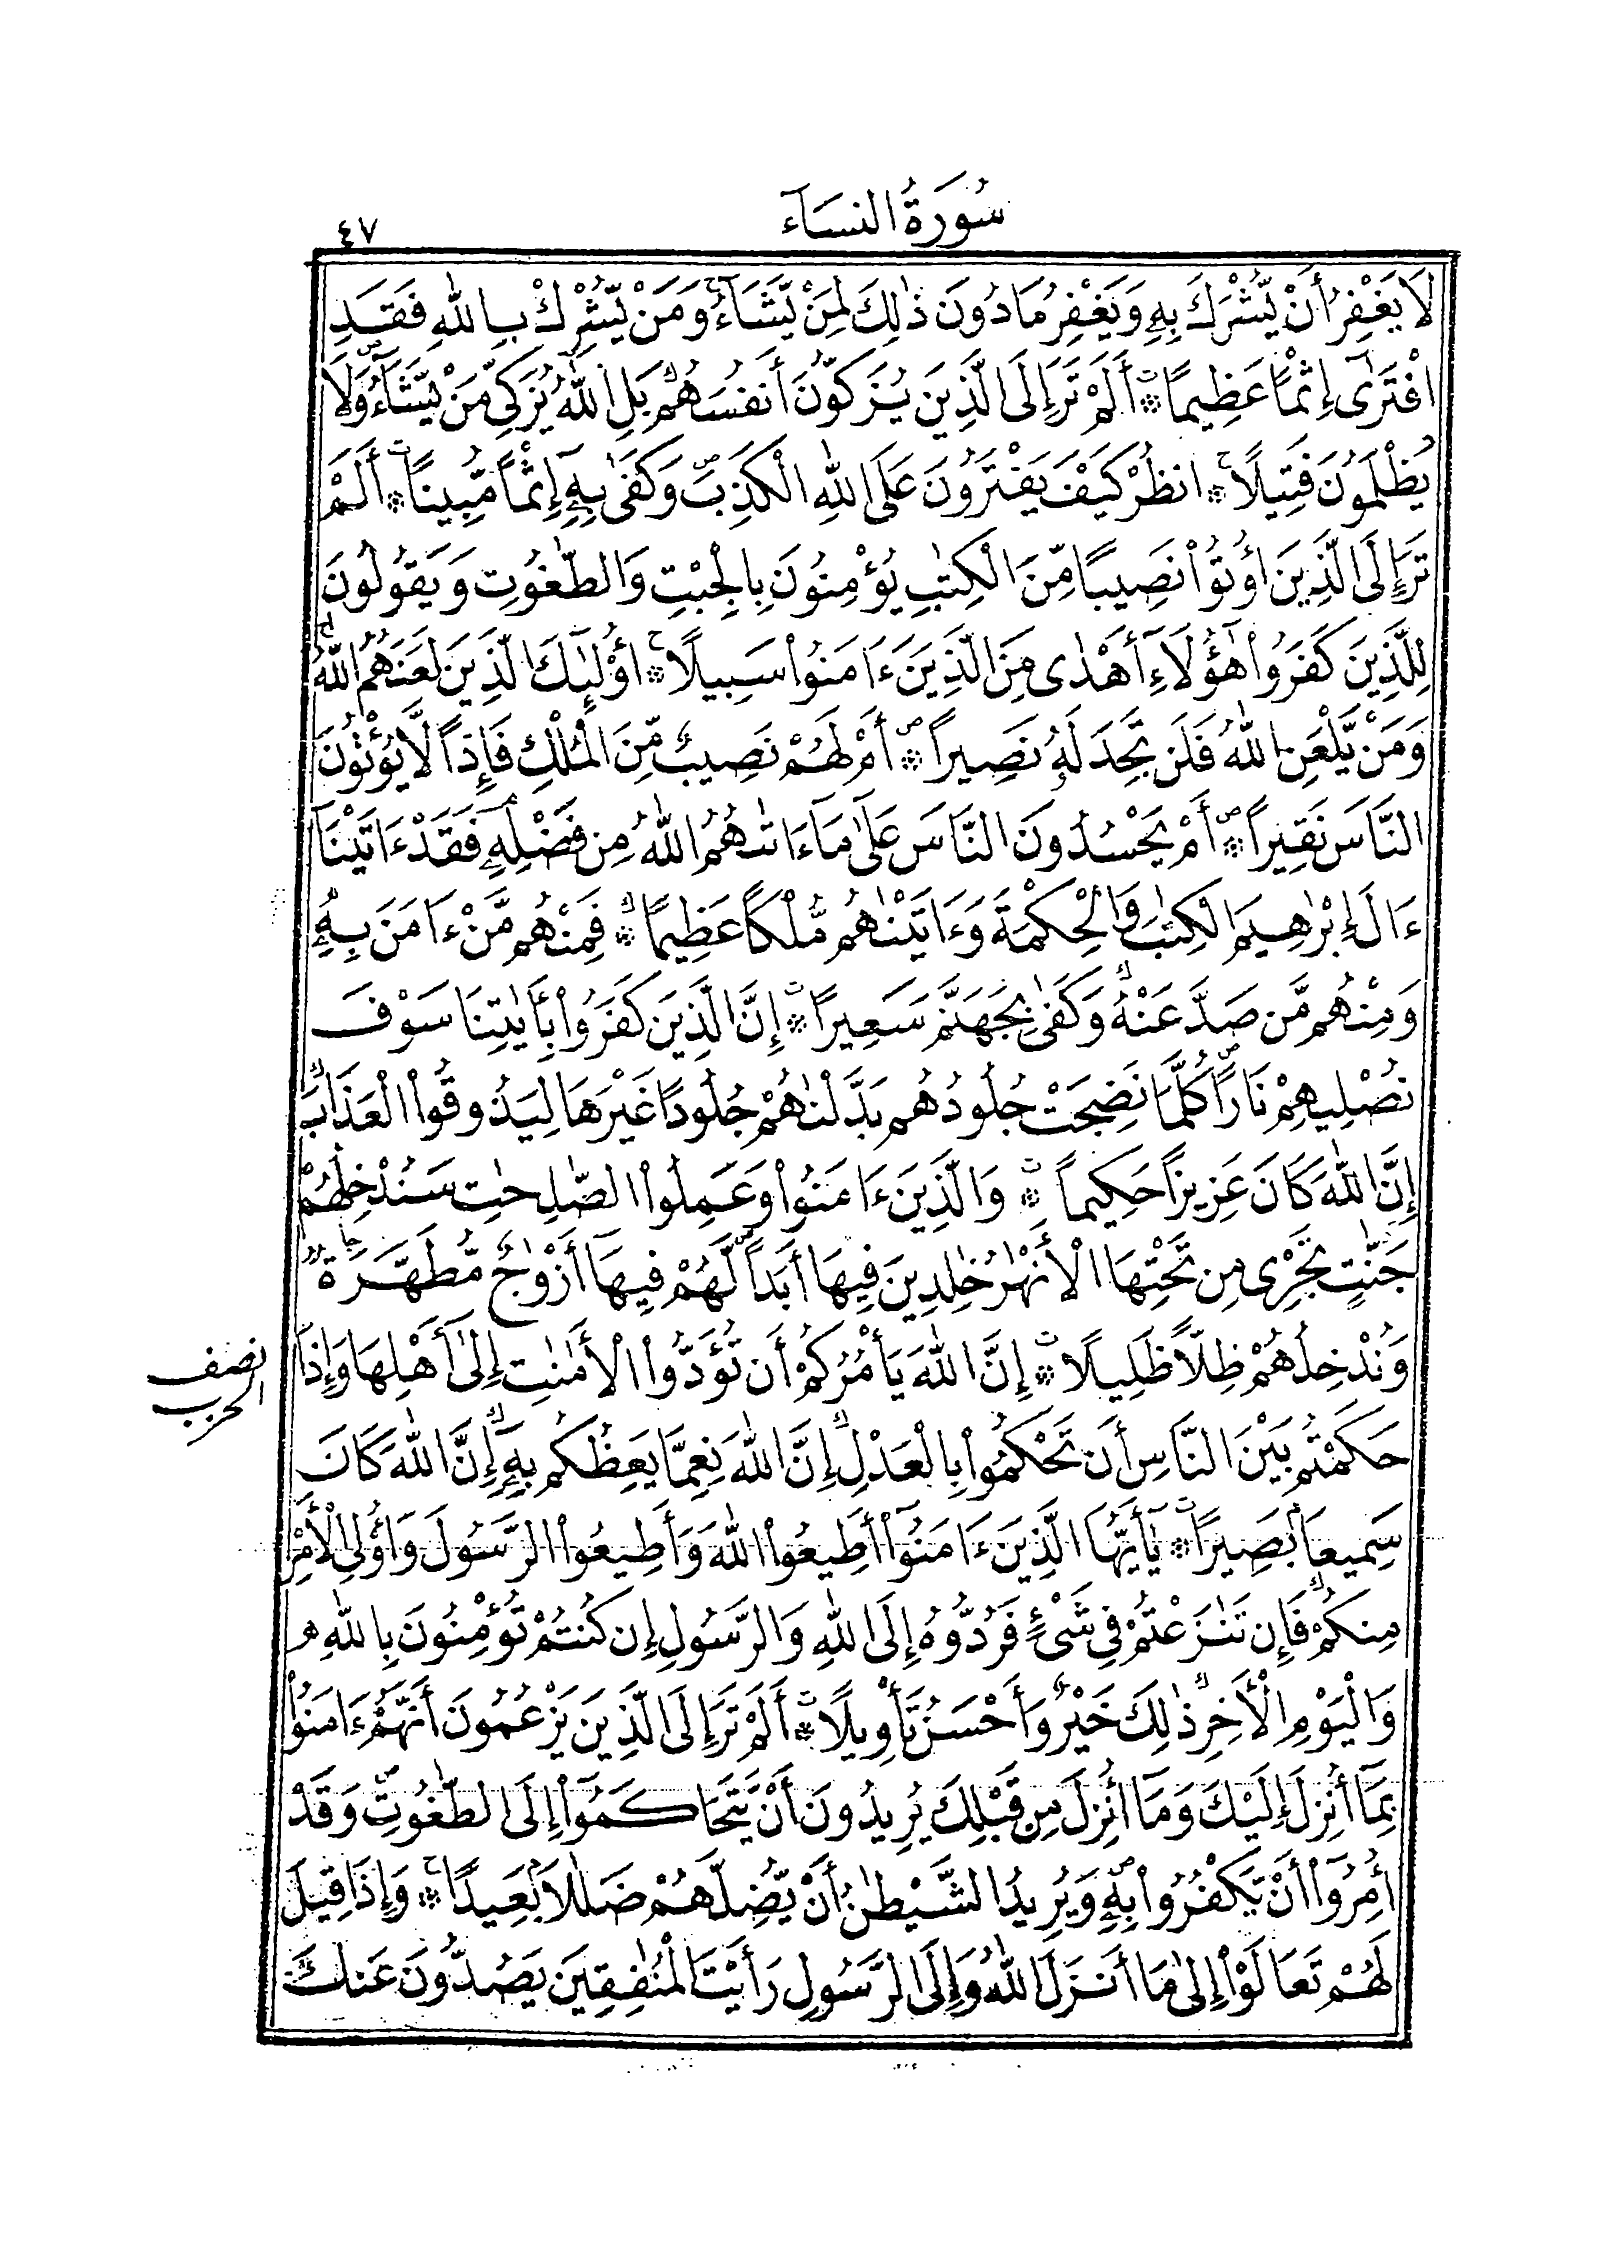 سُورَةُ النسَآء
٤٧
لَا يَغْفِرُ أَنْ يُّشْرَكَ بِهِ وَيَغْفِرُ مَا دُونَ ذَٰلِكَ لِمَنْ يَّشَآءُ وَمَنْ يُّشْرِكْ بِاللهِ فَقَدِ
افْتَرَىٰ إِثْمًا عَظِيمًا ۞ أَلَمْ تَرَ إِلَى الَّذِينَ يُزَكُّونَ أَنفُسَهُمْ بَلِ اللهُ يُزَكِّى مَنْ يَّشَآءُ وَلَا
يُظْلَمُونَ فَتِيلًا ۞ انظُرْ كَيْفَ يَفْتَرُونَ عَلَى اللهِ الْكَذِبَ وَكَفَىٰ بِهِ إِثْمًا مُّبِينًا ۞ أَلَمْ
تَرَ إِلَى الَّذِينَ أُوتُوا نَصِيبًا مِّنَ الْكِتَٰبِ يُؤْمِنُونَ بِالْجِبْتِ وَالطَّٰغُوتِ وَيَقُولُونَ
لِلَّذِينَ كَفَرُوا هَٰٓؤُلَآءِ أَهْدَىٰ مِنَ الَّذِينَ ءَامَنُوا سَبِيلًا ۞ أُوْلَٰٓئِكَ الَّذِينَ لَعَنَهُمُ اللهُ
وَمَنْ يَّلْعَنِ اللهُ فَلَن تَجِدَ لَهُ نَصِيرًا ۞ أَمْ لَهُمْ نَصِيبٌ مِّنَ الْمُلْكِ فَإِذًا لَّا يُؤْتُونَ
النَّاسَ نَقِيرًا ۞ أَمْ يَحْسُدُونَ النَّاسَ عَلَىٰ مَآ ءَاتَىٰهُمُ اللهُ مِن فَضْلِهِ فَقَدْ ءَاتَيْنَآ
ءَالَ إِبْرَٰهِيمَ الْكِتَٰبَ وَالْحِكْمَةَ وَءَاتَيْنَٰهُم مُّلْكًا عَظِيمًا ۞ فَمِنْهُم مَّنْ ءَامَنَ بِهِ
وَمِنْهُم مَّن صَدَّ عَنْهُ وَكَفَىٰ بِجَهَنَّمَ سَعِيرًا ۞ إِنَّ الَّذِينَ كَفَرُوا بِـَٔايَٰتِنَا سَوْفَ
نُصْلِيهِمْ نَارًا كُلَّمَا نَضِجَتْ جُلُودُهُم بَدَّلْنَٰهُمْ جُلُودًا غَيْرَهَا لِيَذُوقُوا الْعَذَابَ
إِنَّ اللهَ كَانَ عَزِيزًا حَكِيمًا ۞ وَالَّذِينَ ءَامَنُوا وَعَمِلُوا الصَّٰلِحَٰتِ سَنُدْخِلُهُمْ
جَنَّٰتٍ تَجْرِى مِن تَحْتِهَا الْأَنْهَٰرُ خَٰلِدِينَ فِيهَا أَبَدًا لَّهُمْ فِيهَآ أَزْوَٰجٌ مُّطَهَّرَةٌ
وَنُدْخِلُهُمْ ظِلًّا ظَلِيلًا ۞ إِنَّ اللهَ يَأْمُرُكُمْ أَن تُؤَدُّوا الْأَمَٰنَٰتِ إِلَىٰٓ أَهْلِهَا وَإِذَا
نصف
الحزب
حَكَمْتُم بَيْنَ النَّاسِ أَن تَحْكُمُوا بِالْعَدْلِ إِنَّ اللهَ نِعِمَّا يَعِظُكُم بِهِ إِنَّ اللهَ كَانَ
سَمِيعًا بَصِيرًا ۞ يَٰٓأَيُّهَا الَّذِينَ ءَامَنُوٓا أَطِيعُوا اللهَ وَأَطِيعُوا الرَّسُولَ وَأُوْلِى الْأَمْرِ
مِنكُمْ فَإِن تَنَٰزَعْتُمْ فِى شَىْءٍ فَرُدُّوهُ إِلَى اللهِ وَالرَّسُولِ إِن كُنتُمْ تُؤْمِنُونَ بِاللهِ
وَالْيَوْمِ الْأَخِرِ ذَٰلِكَ خَيْرٌ وَأَحْسَنُ تَأْوِيلًا ۞ أَلَمْ تَرَ إِلَى الَّذِينَ يَزْعُمُونَ أَنَّهُمْ ءَامَنُوا
بِمَآ أُنزِلَ إِلَيْكَ وَمَآ أُنزِلَ مِن قَبْلِكَ يُرِيدُونَ أَنْ يَّتَحَاكَمُوٓا إِلَى الطَّٰغُوتِ وَقَدْ
أُمِرُوٓا أَنْ يَّكْفُرُوا بِهِ وَيُرِيدُ الشَّيْطَٰنُ أَنْ يُّضِلَّهُمْ ضَلَٰلًا بَعِيدًا ۞ وَإِذَا قِيلَ
لَهُمْ تَعَالَوْا إِلَىٰ مَآ أَنزَلَ اللهُ وَإِلَى الرَّسُولِ رَأَيْتَ الْمُنَٰفِقِينَ يَصُدُّونَ عَنكَ